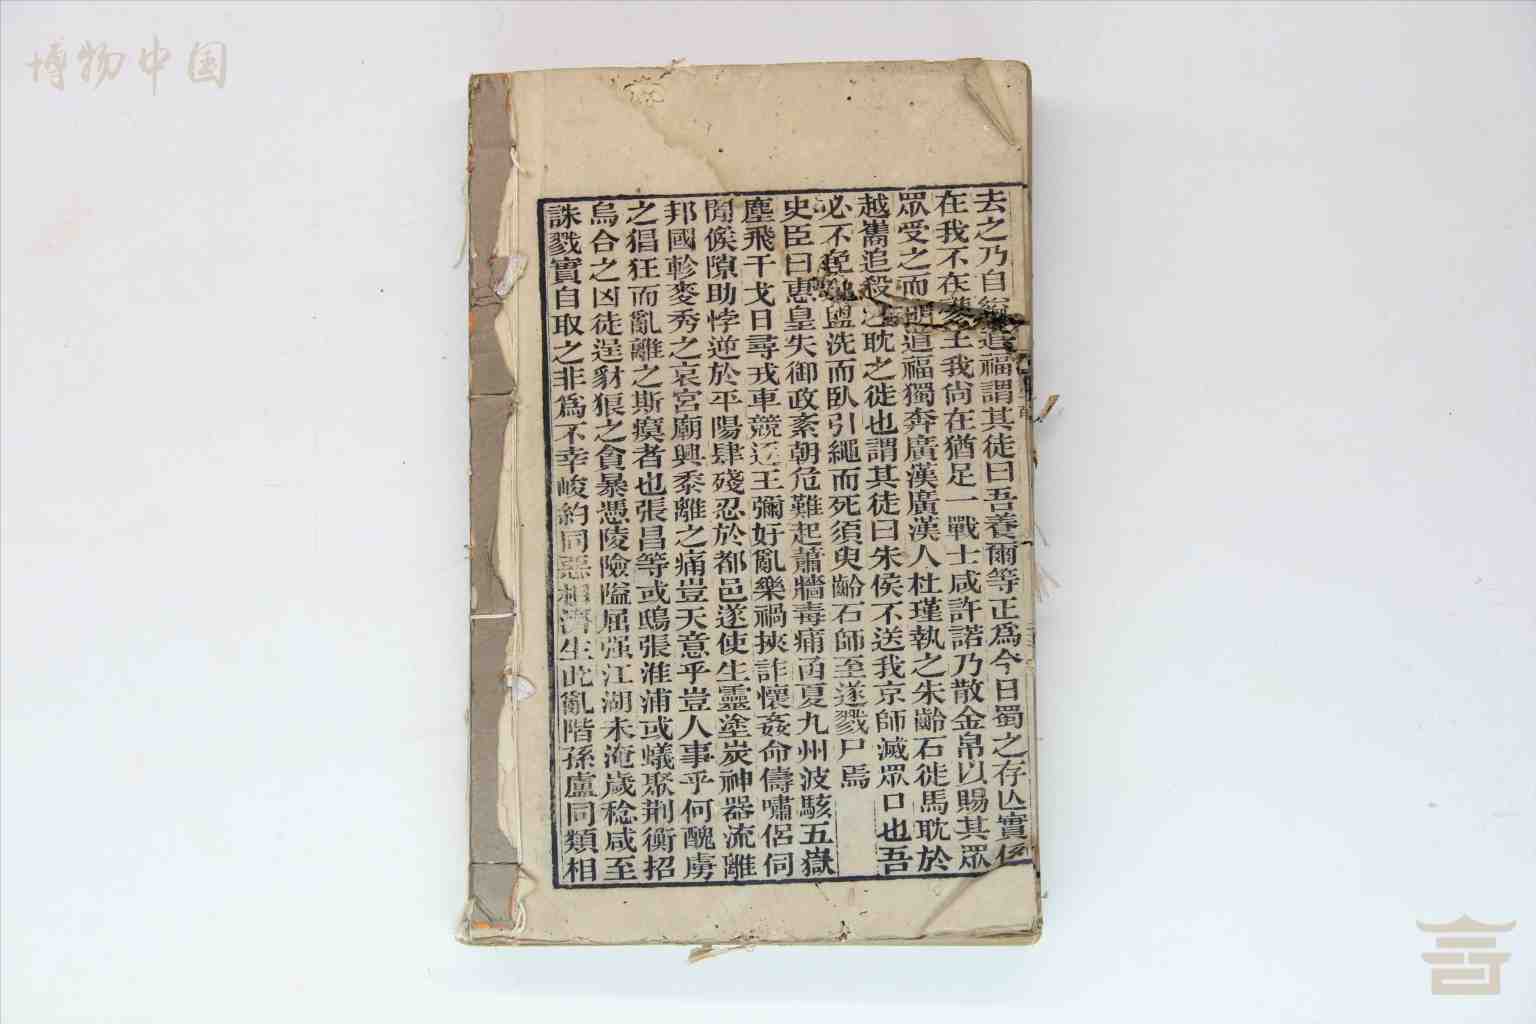 博物中国
去之乃自縊道福謂其徒曰吾養爾等正爲今日蜀之存亾實係
在我不在譙王我尚在猶足一戰士咸許諾乃散金帛以賜其眾
眾受之而道福獨奔廣漢廣漢人杜瑾執之朱齡石徙馬耽於
越巂追殺之耽之徙也謂其徒曰朱侯不送我京師滅眾口也吾
必不免盥洗而臥引繩而死須臾齡石師至遂戮尸焉
史臣曰惠皇失御政紊朝危難起蕭牆毒痡函夏九州波駭五嶽
塵飛干戈日尋戎車競逐王彌好亂樂禍挾詐懷姦命儔嘯侶伺
間候隙助悖逆於平陽肆殘忍於都邑遂使生靈塗炭神器流離
邦國軫麥秀之哀宮廟興黍離之痛豈天意乎豈人事乎何醜虜
之猖狂而亂離之斯瘼者也張昌等或鴟張淮浦或蟻聚荆衡招
烏合之凶徒逞豺狼之貪暴憑陵險隘屈强江湖未淹歲稔咸至
誅戮實自取之非爲不幸峻約同惡相濟生此亂階孫盧同類相